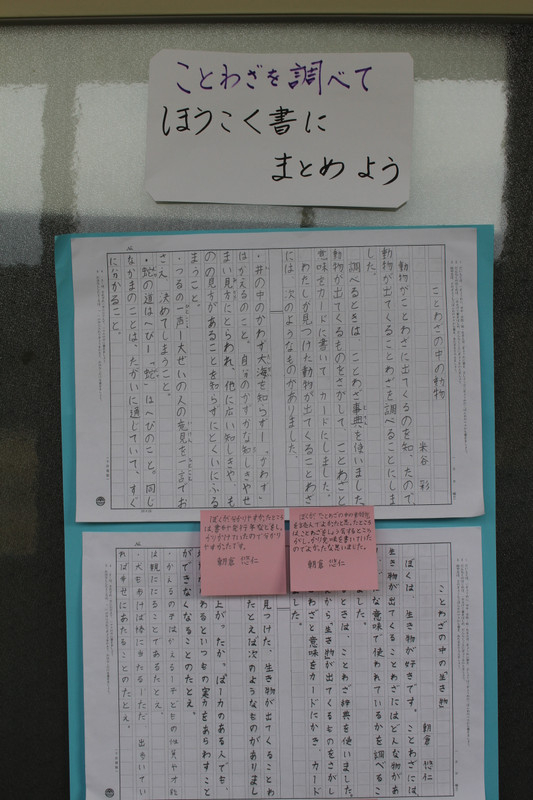 ことわざを調べて
ほうこく書に
まとめよう
ことわざの中の動物
米谷 彩
動物がことわざに出てくるのを知ったので、
動物が出てくることわざを調べることにしま
した。
調べるときは、ことわざ事典を使いました。
動物が出てくるものをさがして、ことわざと
意味をカードに書いて
カードにしました。
わたしが見つけた動物が出てくることわざ
には、次のようなものがありました。
・井の中のかわず大海を知らずー「かわず」
はかえるのこと。自分のわずかな知しきやせ
まい見方にとらわれ、他に広い知しきや、も
のの見方があることを知らずにとくいにふる
まうこと。
・つるの一声ー大ぜいの人の意見を一言でお
さえ、決めてしまうこと。
・蛇の道はへびー「蛇」はへびのこと。同じ
なかまのことは、たがいに通じていて、すぐ
に分かること。
朝倉 悠仁
朝倉 悠仁
ことわざの中の「生き物」
朝倉 悠仁
ぼくは、生き物が好きです。ことわざには
生き物が出てくることわざにはどんな物があ
な意味で使われているかを調べるこ
るときは、ことわざ辞典を使いました。
から、「生き物」が出てくるものをさがし
わざと意味をカードにかき、カード
ました。
見つけた、生き物が出てくることわ
たとえば次のようなものがありまし
上がったかっぱー力のある人でも、
わるといつもの実力をあらわすこと
ができなくなることのたとえ。
・かえるの子はかえるー子どもの性質や才能
は親ににることであるたとえ。
・犬も歩けば棒に当たるーただ、出歩いてい
れば幸せにあたることのたとえ。